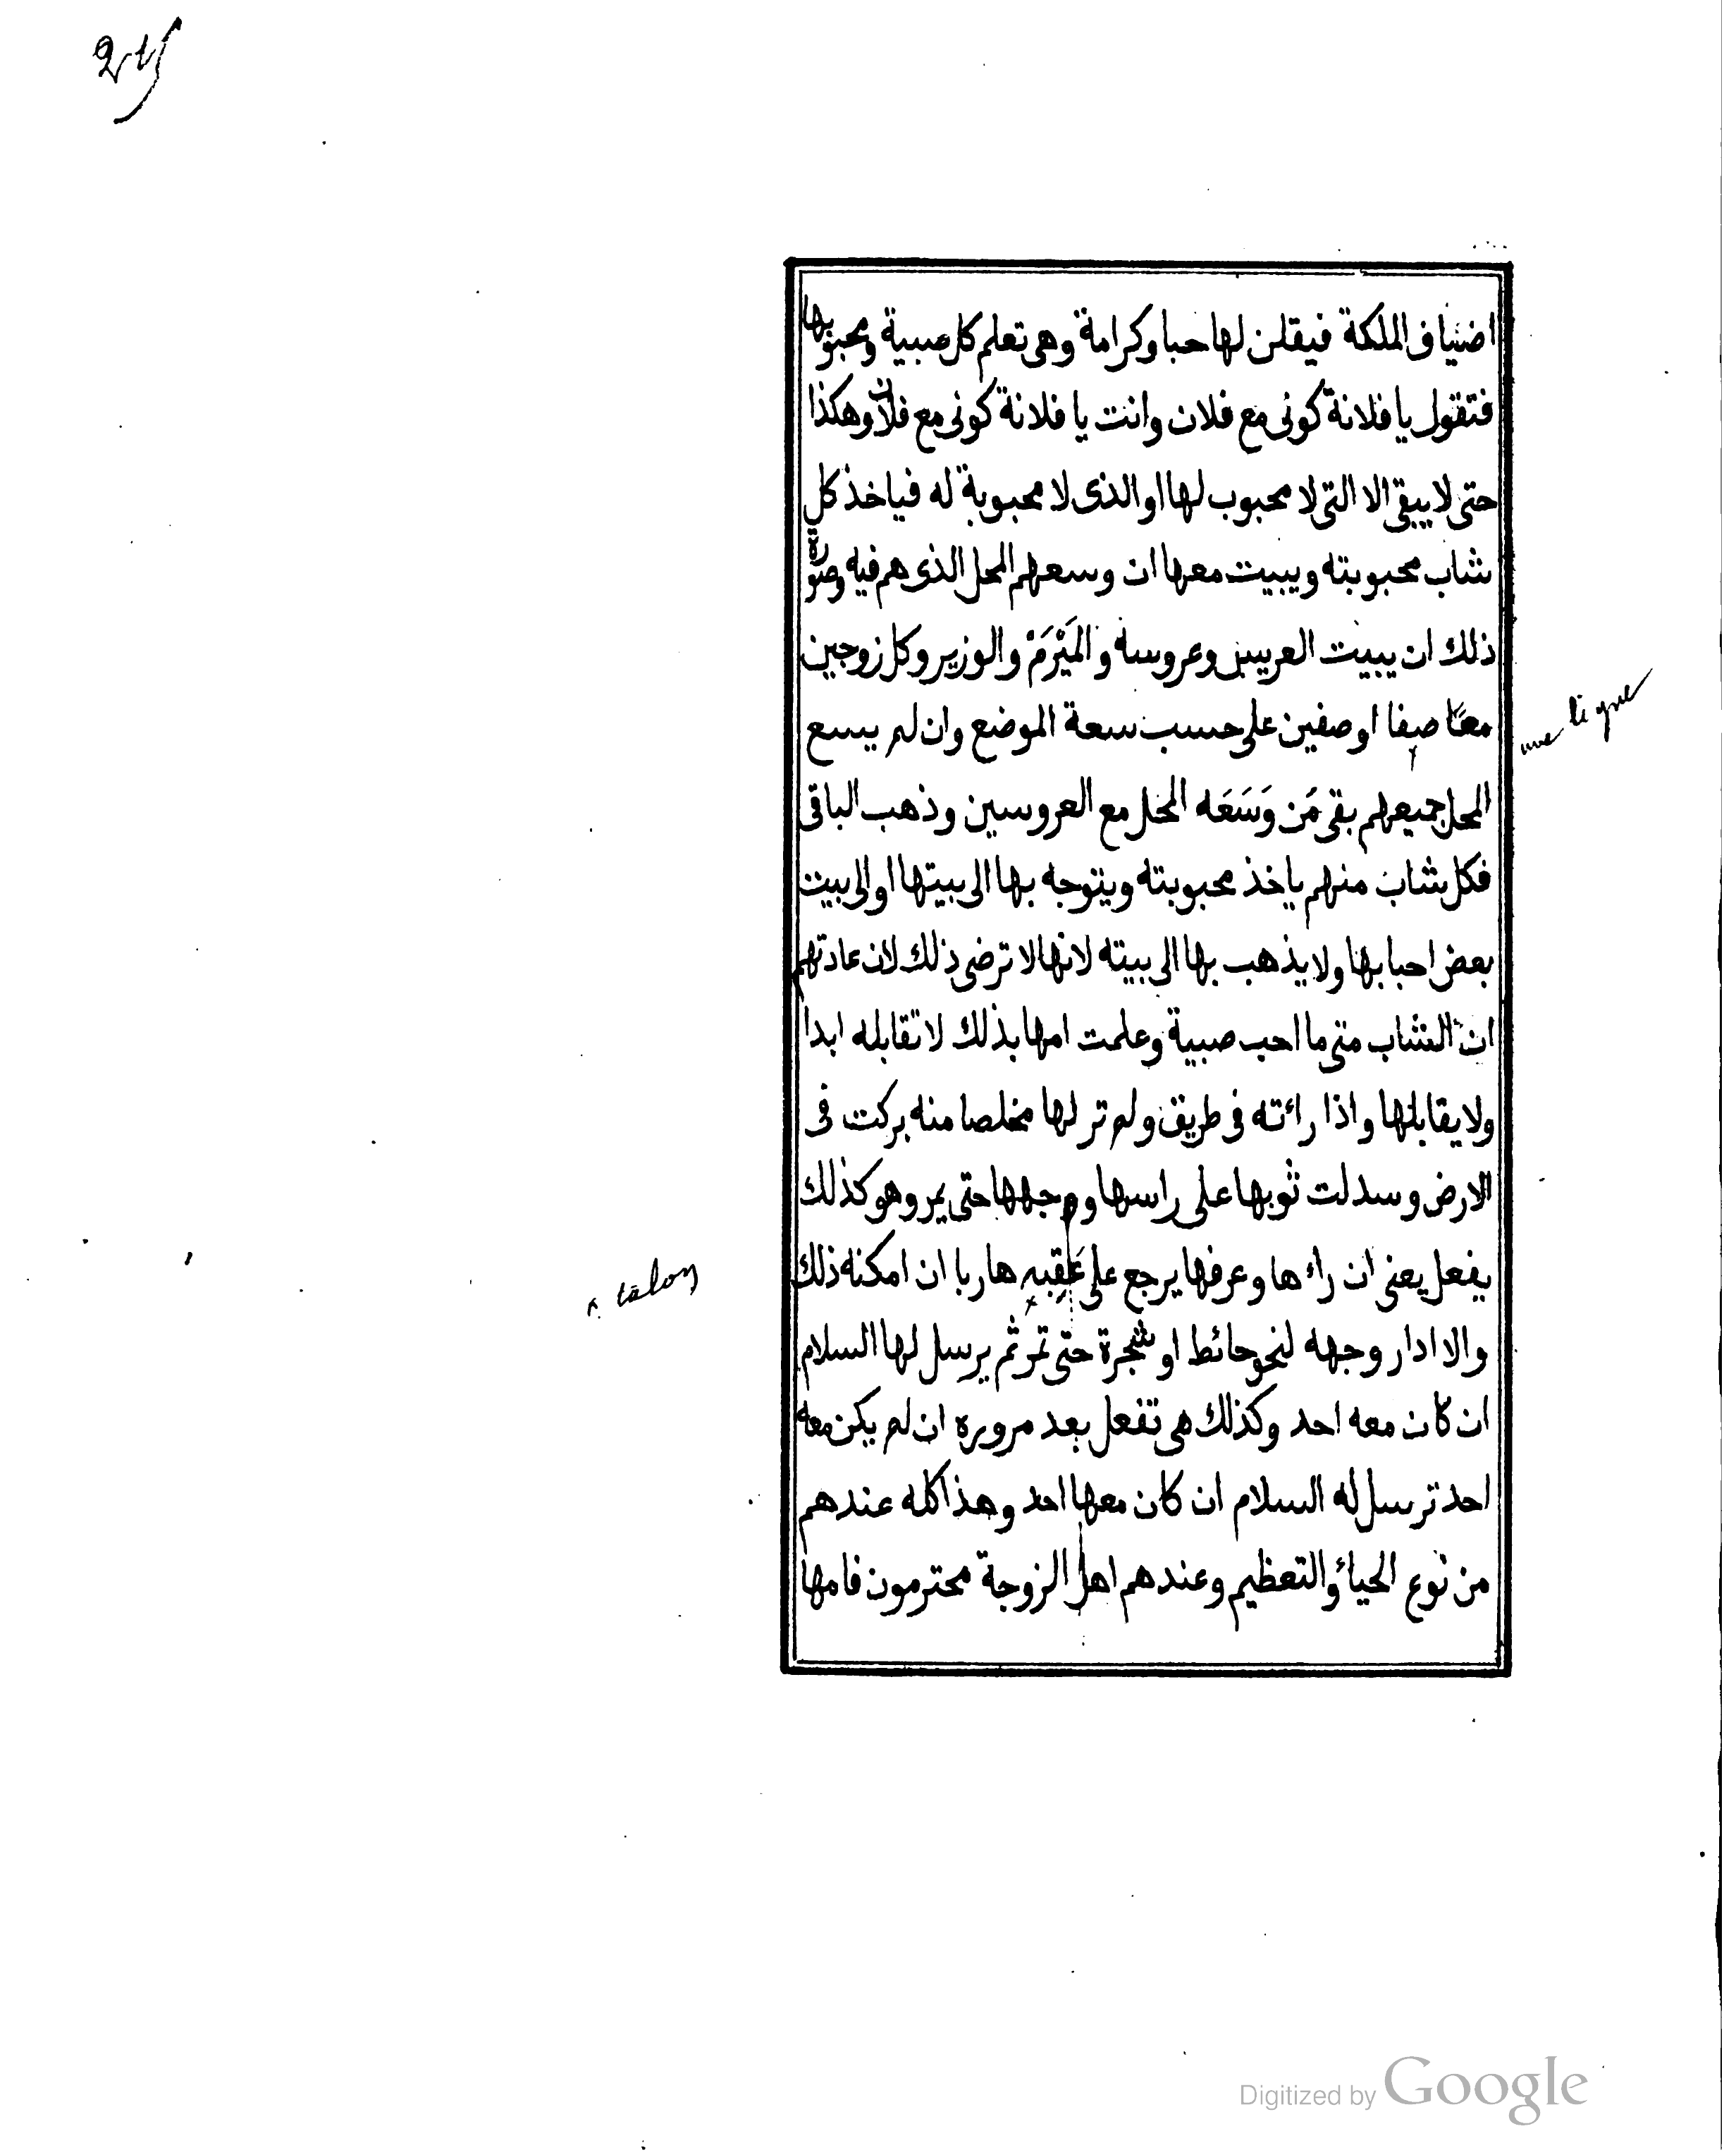 اضياف الملكة فيقلن لها حبا وكرامة وهى تعلم كل صبية ومحبوبها
فتقول يا فلانة كونى مع فلان وانت يا فلانة كونى مع فلان وهكذا
حتى لا يبقى الا التى لا محبوب لها او الذى لا محبوبة له فياخذ كل
شاب محبوبته ويبيت معها ان وسعهم المحل الذى هم فيه وصورة
ذلك ان يبيت العريس وعروسه والمَيْرَمْ والوزير وكل زوجين
معًا صفا او صفين على حسب سعة الموضع وان لم يسع
une ligne
المحل جميعهم بقى مَن وَسَعَه المحل مع العروسين وذهب الباقى
فكل شاب منهم ياخذ محبوبته ويتوجه بها الى بيتها او الى بيت
بعض احبابها ولا يذهب بها الى بيته لانها لا ترضى ذلك لان عادتهم
ان الشاب متى ما احب صبية وعلمت امها بذلك لا تقابله ابدا
ولا يقابلها واذا رائته فى طريق ولم تر لها مخلصا منه بركت فى
الارض وسدلت ثوبها على راسها ووجهها حتى يمر وهو كذلك
يفعل يعنى ان راءها وعرفها يرجع على عَقِبِه هاربا ان امكنه ذلك
x talon
والا ادار وجهه لنحو حائط او شجرة حتى تمر ثم يرسل لها السلام
ان كان معه احد وكذلك هى تفعل بعد مروره ان لم يكن معه
احد ترسل له السلام ان كان معها احد وهذا كله عندهم
من نوع الحياء والتعظيم وعندهم اهل الزوجة محترمون فامها
Digitized by Google